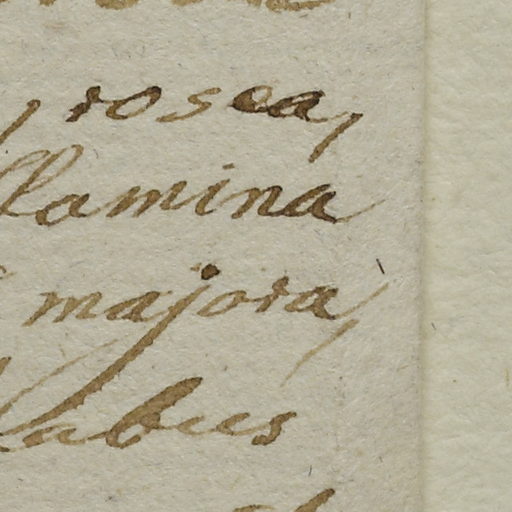 , rosea,
llamina
majora,
llabus